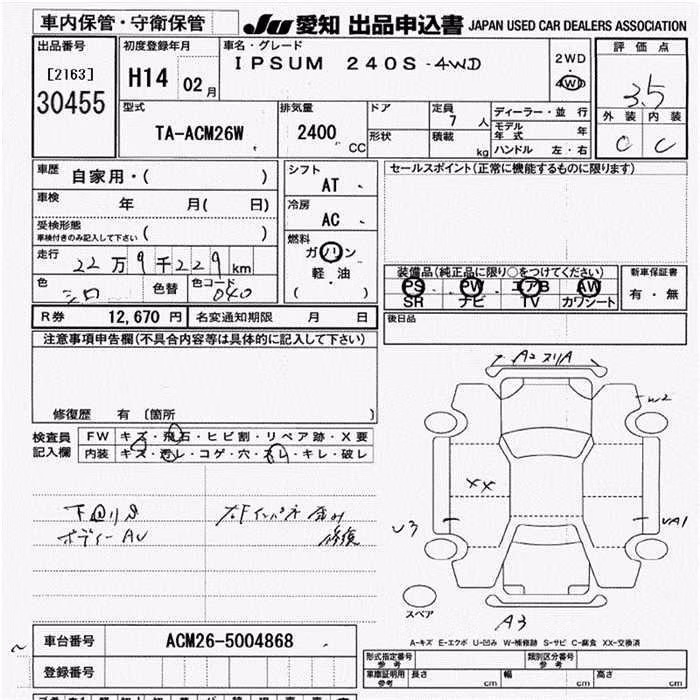 車内保管・守衛保管
JU 愛知 出品申込書 JAPAN USED CAR DEALERS ASSOCIATION
出品番号 [2163] 30455
初度登録年月 H14 02月
車名・グレード IPSUM 240S -4WD
2WD 4WD
評価点 3.5
外装 内装
C C
型式 TA-ACM26W
排気量 2400 CC
ドア 形状
定員 7人
積載 kg
ディーラー・並行
モデル年式 年
ハンドル 左・右
車歴 自家用・( )
車検 年 月( 日)
受検形態
車検付きのみ記入して下さい ( )
走行 22万9千229km
色 シロ 色替 色コード 040
シフト AT
冷房 AC
燃料 ガソリン
軽・油
( )
セールスポイント(正常に機能するものに限ります)
装備品(純正品に限り○をつけてください)
PS PW エアB AW
SR ナビ TV カワシート
新車保証書
有・無
後日品
R券 12,670円 名変通知期限 月 日
注意事項申告欄(不具合内容等は具体的に記入して下さい)
修復歴 有 〔箇所 〕
検査員記入欄
FW キズ・飛石・ヒビ割・リペア跡・X要
内装 キズ・汚レ・コゲ・穴・スレ・キレ・破レ
下回りS
ボディーAU
右Fインパネ 凹み
修復
A2 スリA
W2
XX
U3
UA1
A3
スペア
A-キズ E-エクボ U-凹み W-補修跡 S-サビ C-腐食 XX-交換済
車台番号 ACM26-5004868
登録番号
形式指定番号 参考
類別区分番号 参考
車庫証明用参考 長さ cm 幅 cm 高さ cm